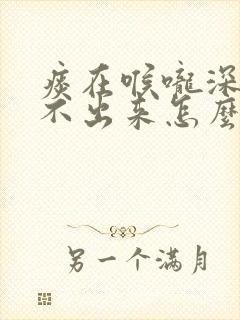 痰在喉嚨深
不出来怎麼
另一个满月